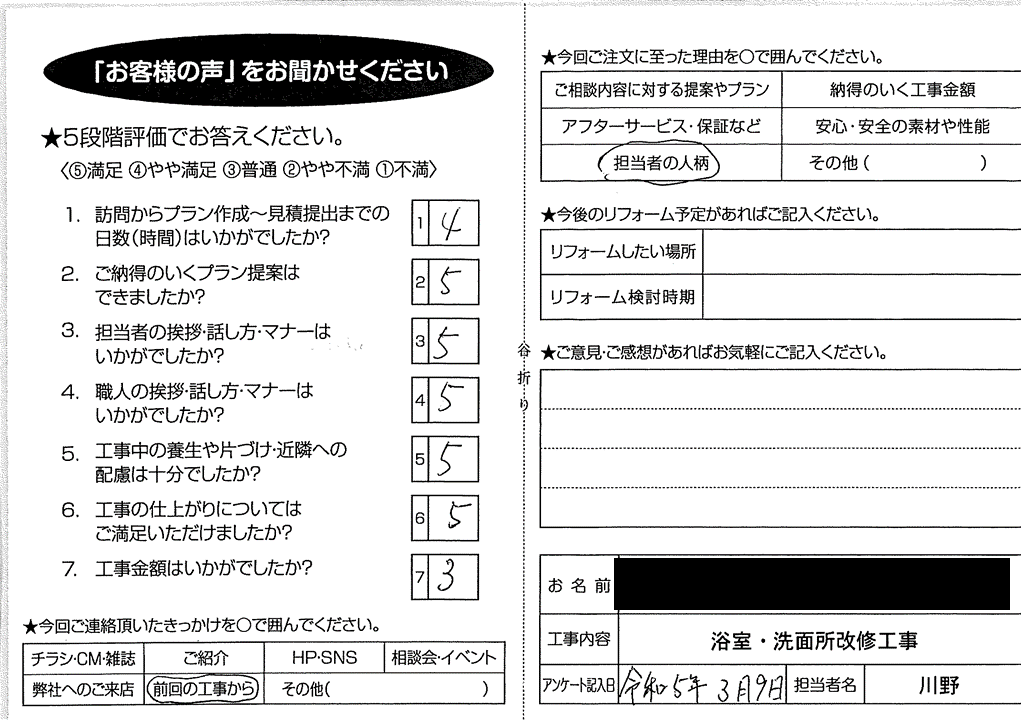 「お客様の声」をお聞かせください
★5段階評価でお答えください。
〈⑤満足 ④やや満足 ③普通 ②やや不満 ①不満〉
1. 訪問からプラン作成〜見積提出までの
日数(時間)はいかがでしたか?
1 4
2. ご納得のいくプラン提案は
できましたか?
2 5
3. 担当者の挨拶・話し方・マナーは
いかがでしたか?
3 5
4. 職人の挨拶・話し方・マナーは
いかがでしたか?
4 5
5. 工事中の養生や片づけ・近隣への
配慮は十分でしたか?
5 5
6. 工事の仕上がりについては
ご満足いただけましたか?
6 5
7. 工事金額はいかがでしたか?
7 3
★今回ご連絡頂いたきっかけを○で囲んでください。
チラシ・CM・雑誌 ご紹介 HP・SNS 相談会・イベント
弊社へのご来店 前回の工事から その他( )
谷折り
★今回ご注文に至った理由を○で囲んでください。
ご相談内容に対する提案やプラン 納得のいく工事金額
アフターサービス・保証など 安心・安全の素材や性能
担当者の人柄 その他( )
★今後のリフォーム予定があればご記入ください。
リフォームしたい場所
リフォーム検討時期
★ご意見・ご感想があればお気軽にご記入ください。
お名前
工事内容 浴室・洗面所改修工事
アンケート記入日 令和5年3月9日 担当者名 川野